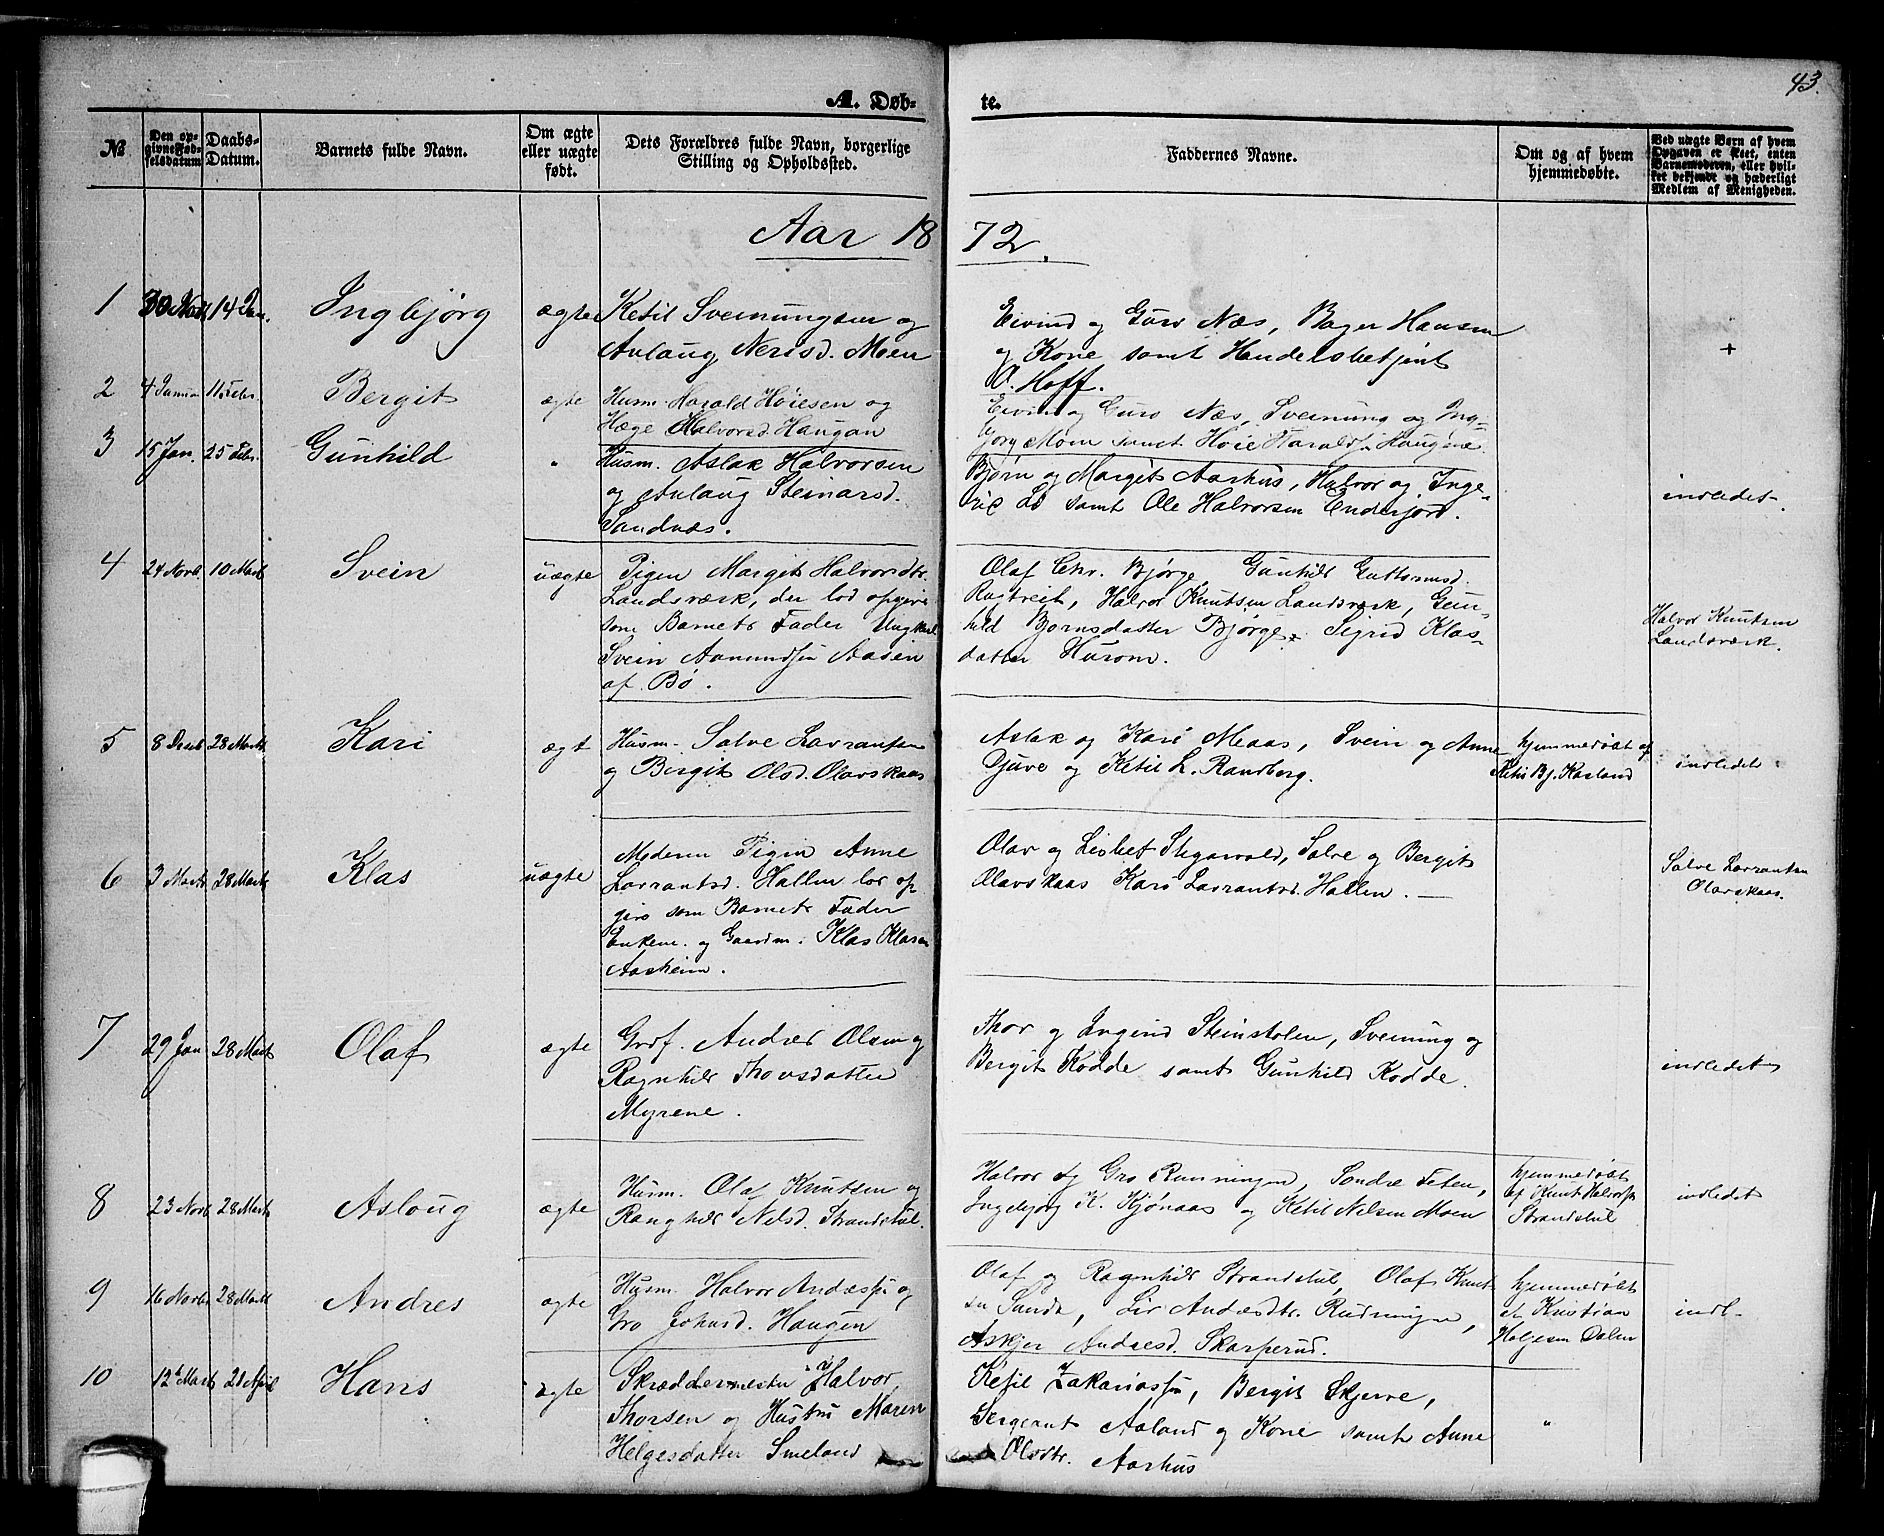 43.
A. Døb-
te.
№
Den op-
givne Fød-
selsdatum
Daabs-
Datum.
Barnets fulde Navn.
Om ægte
eller uægte
født.
Dets Forældres fulde Navn, borgerlige
Stilling og Opholdssted.
Faddernes Navne.
Om og af hvem
hjemmedøbte.
Ved uægte Barn af hvem
Opgaven er skeet, enten
Barnemoderen, eller hvil-
ket bekjendt og hæderligt
Medlem af Menigheden.
Aar 18
72.
1
30 Novb 14 Jan.
Ingbjørg
ægte
Ketil Sveinungsen og
Aslaug Nerisd. Moen
Eivind og Guro Næs, Bager Hansen
og Kone samt Handelsbetjent
O. Hoff.
+
2
4 Januar 11 Febr.
Bergit
ægte
Husm. Harald Høiesen og
Hæge Halvorsd. Haugan
Eivind og Guro Næs, Sveinung og Ing-
jorg Moen samt Høie Haralds. Haugene.
3
15 Jan. 25 Febr.
Gunhild
"
Husm. Aslak Halvorsen
og Aslaug Steinarsd.
Sandnæs.
Bjørn og Margit Aarhus, Halvor og Inge-
samt Ole Halvorsen Enderjord.
indledet.
4
24 Novb 10 Marts
Svein
uægte
Pigen Margit Halvorsdtr.
Landsværk, der lod opgive
som Barnets Fader Ungkarl
Svein Aamundsen Aasen
af Bø.
Olaf Chr. Bjørge, Gunhild Guttormsd.
Halvor Knutsen Landsværk, Gun-
hild Bjørnsdatter Bjørge. Sigrid Klas-
datter Husom.
Halvor Knutsen
Landsværk.
5
8 Decb 28 Marts
Kari
ægt
Husm. Salve Lavrantsen
og Bergit Olsd. Olavskaas
Aslak og Kari Meaas, Svein og Anne
Djuve og Ketil L. Randberg.
hjemmedøbt af
Ketil Bj. Kasland
indledet
6
3 Marts 28 Marts
Klas
uægte
Moderen Pigen Anne
Lavrantsd. Hallen lod op-
give som Barnets Fader
Enkem. og Gaardm. Klas Klasen
Aasheim.
Olav og Lisbet Skjaavold, Salve og Bergit
Olavskaas Kari Lavrantsd. Hallen. —
Salve Lavrantsen
Olavskaas.
7
29 Jan 28 Marts
Olaf
ægte
Grdf. Andres Olsen og
Ragnhild Thovsdatter
Myrene.
Thor og Ingind Steinstolen, Sveinung og
Bergit Kodde samt Gunhild Kodde.
indledet
8
23 Novb 28 Marts
Asloug
ægte
Husm. Olaf Knutsen og
Ranghild Nelsd. Strandstul.
Halvor og Gro Runningen, Sondre Teten,
Ingebjørg K. Kjønaas og Ketil Nilsen Moen
hjemmedøbt
af Knut Halvorsen
Strandstul
indledet
9
16 Novbr 28 Marts
Andres
ægte
Husm. Halvor Andresen og
Gro Johnsd. Haugen
Olaf og Ragnhild Strandstul, Olaf Knut-
sen Sanda, Liv Andresdtr. Rudningen,
Askjer Andresd. Skarperud.
hjemmedøbt
af Kristian
Helgesen Dalen
indl-
10
12te Marts 21 April
Hans
ægte
Skræddermester Halvor
Thorsen og Hustru Maren
Helgesdatter Smeland
Ketil Zakariassen, Bergit Skjerve,
Sergeant Aaland og Kone samt Anne
Olsdtr. Aarhus
"